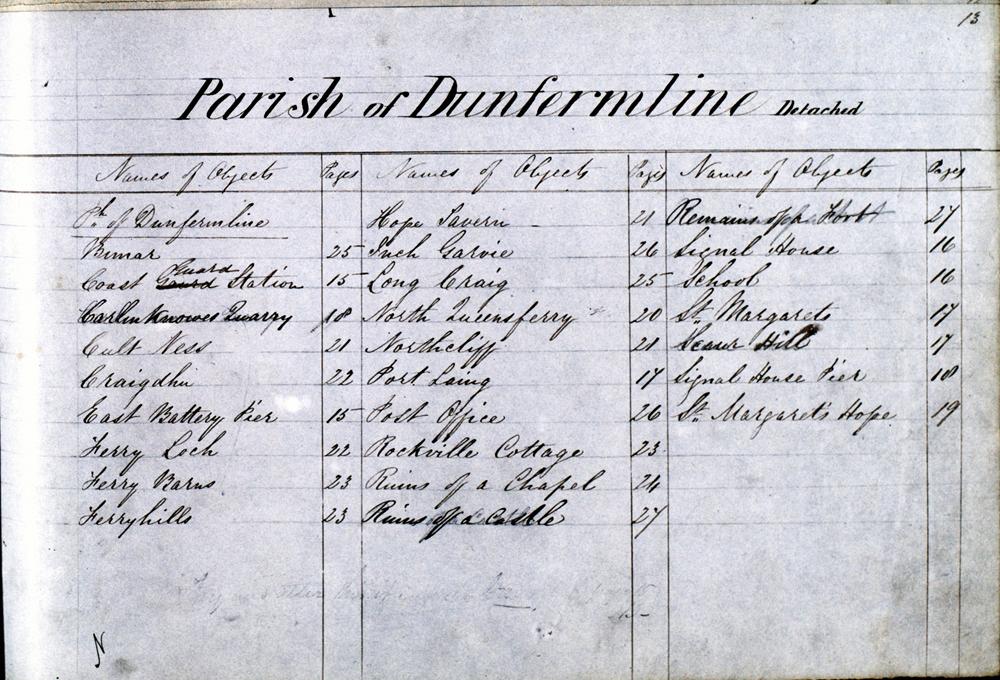 13
Parish of Dunfermline Detached
Names of Objects Pages Names of Objects Pages Names of Objects Pages
Ph. of Dunfermline Hope Tavern 21 Remains of a Fort 27
Bimar 25 Inch Garvie 26 Signal House 16
Guard
Coast Gaurd Station 15 Long Craig 25 School 16
Carlinknowes Quarry 18 North Queensferry 20 St. Margarets 17
Cult Ness 21 Northcliff 21 Scaur Hill 17
Craigdhu 22 Port Laing 17 Signal House Pier 18
East Battery Pier 15 Post Office 26 St. Margaret's Hope 19
Ferry Loch 22 Rockville Cottage 23
Ferry Barns 23 Ruins of a Chapel 24
Ferryhills 23 Ruins of a Castle 27
N